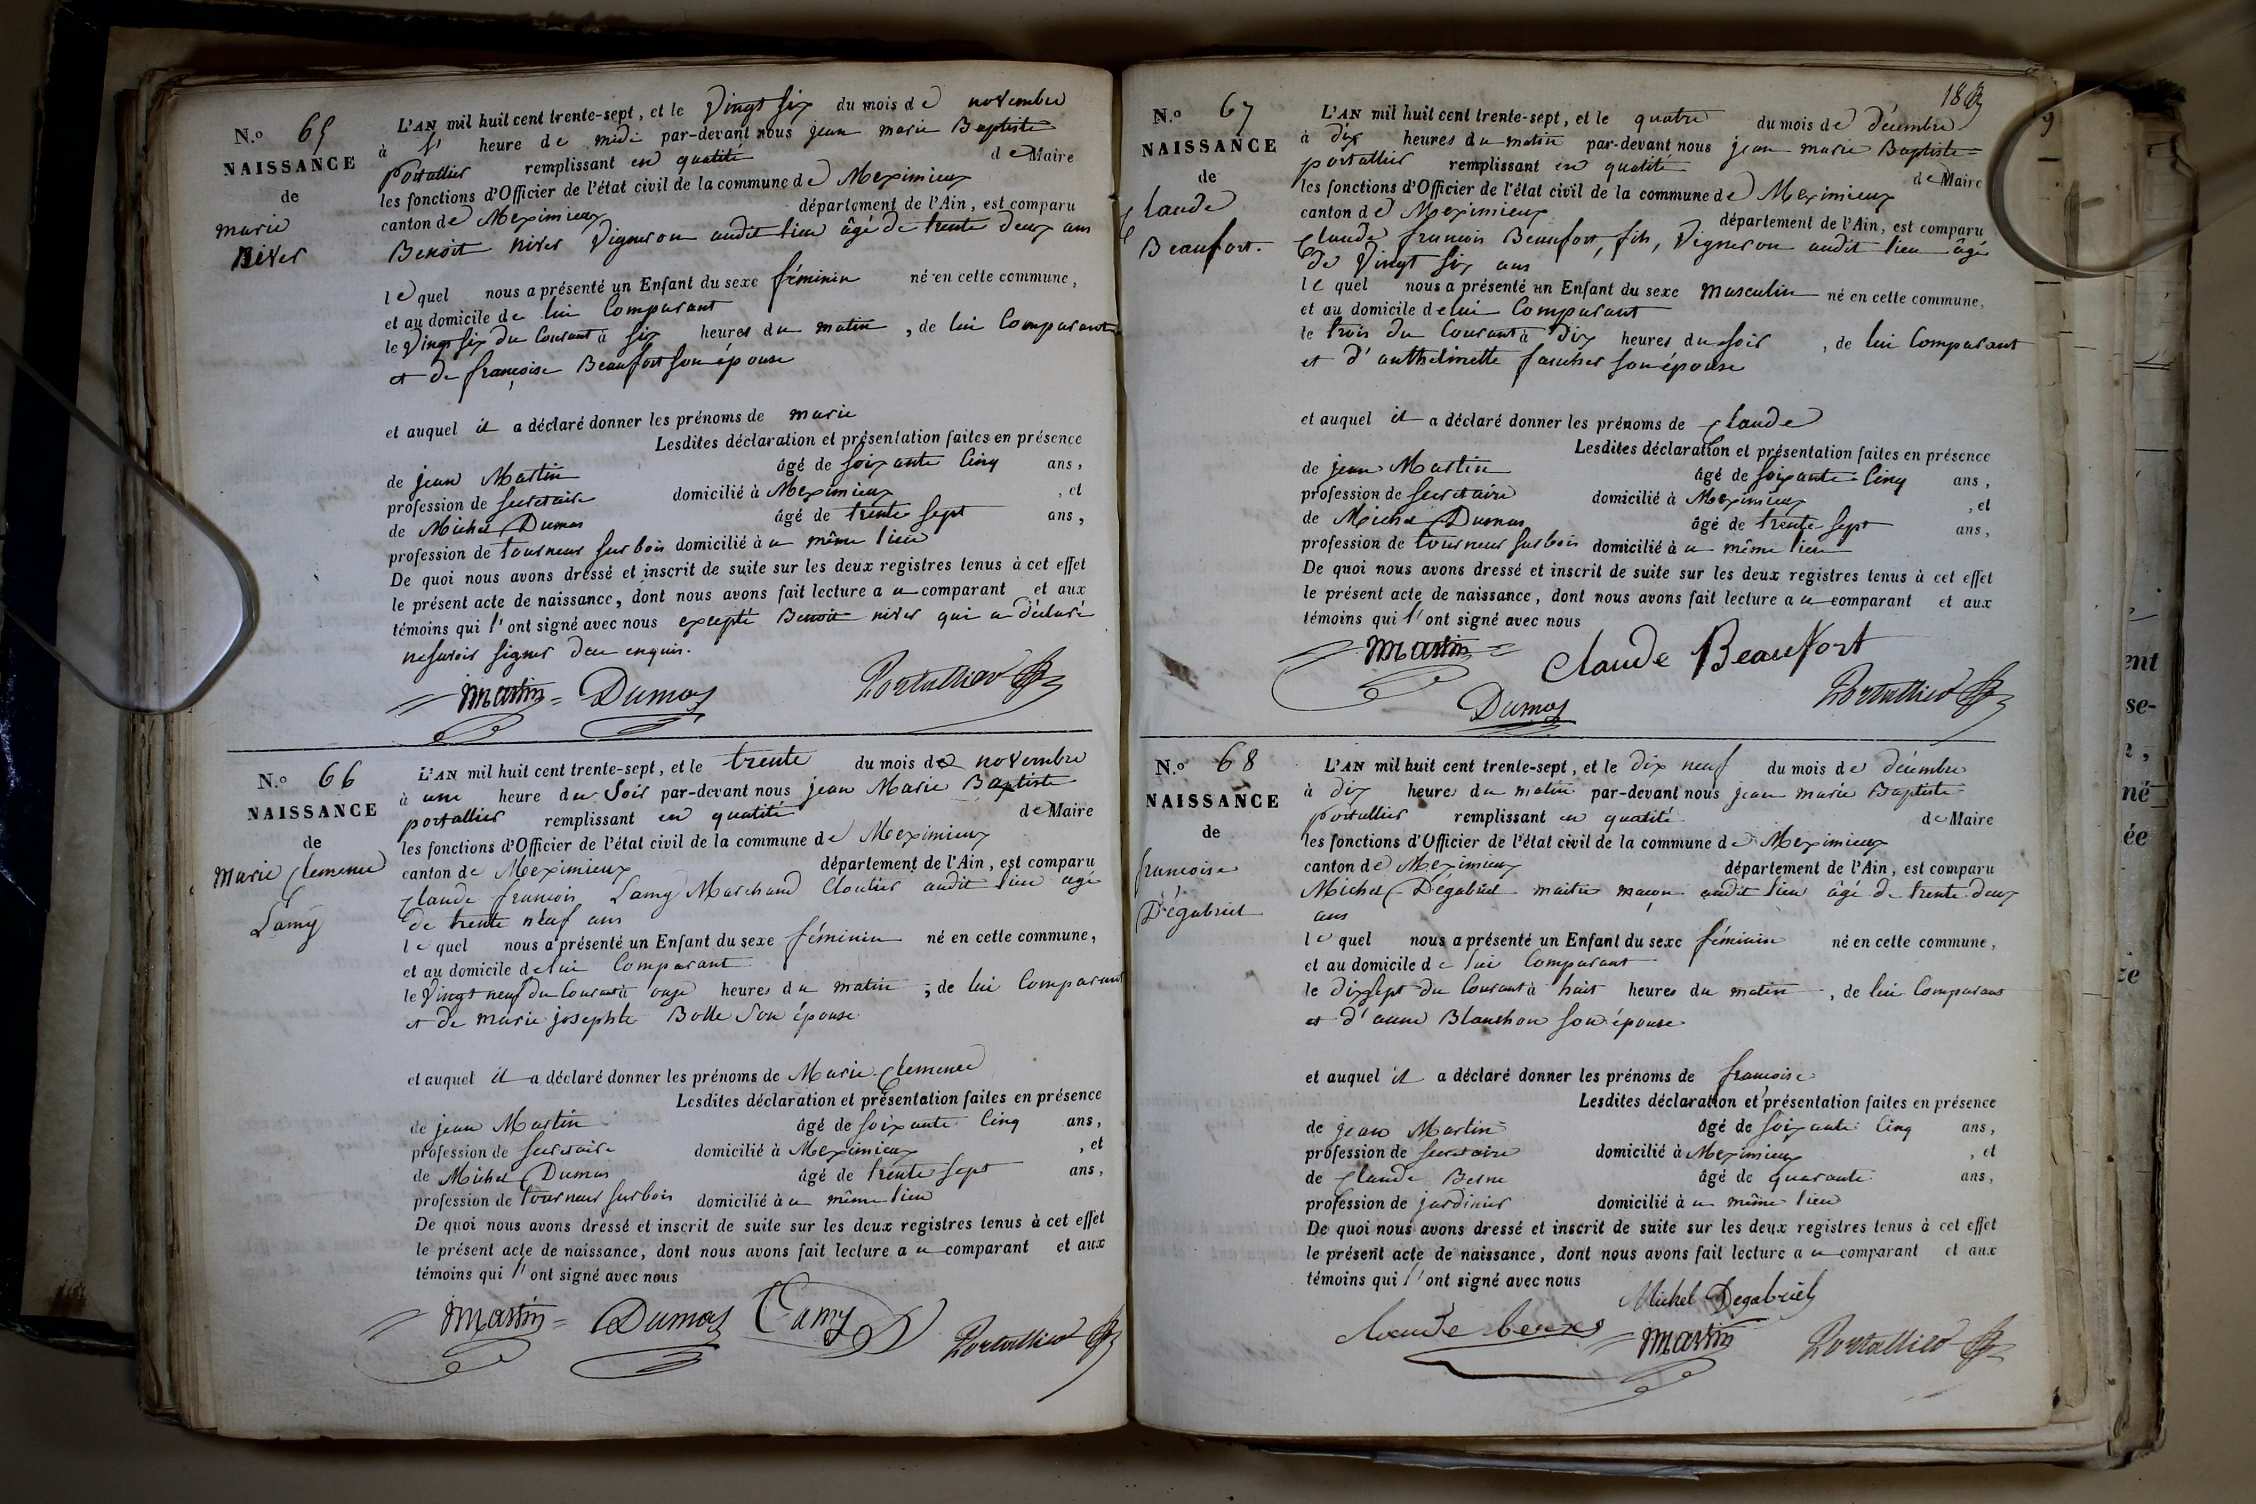 N.º 65
NAISSANCE
de
marie
Niver
L'AN mil huit cent trente-sept, et le vingt six du mois de novembre
à heure de midi par-devant nous jean marie Baptiste
portallier remplissant en qualité de Maire
les fonctions d'Officier de l'état civil de la commune de Meximieux
canton de Meximieux département de l'Ain, est comparu
Benoit niver vigneron audit lieu âgé de trente deux ans
lequel nous a présenté un Enfant du sexe féminin né en cette commune,
et au domicile de lui Comparant
le vingt six du Courant à six heures du matin, de lui Comparant
et de françoise Beaufort son épouse
et auquel il a déclaré donner les prénoms de marie
Lesdites déclaration et présentation faites en présence
de jean Martin âgé de soixante Cinq ans,
profession de secretaire domicilié à Meximieux, et
de Michel Dumas âgé de trente sept ans,
profession de tourneur sur bois domicilié à u même lieu
De quoi nous avons dressé et inscrit de suite sur les deux registres tenus à cet effet
le présent acte de naissance, dont nous avons fait lecture au comparant et aux
témoins qui l'ont signé avec nous excepté Benoit niver qui a déclaré
ne savoir signer de ce enquis.
Martin Dumas Portallier
N.º 66
NAISSANCE
de
Marie Clemence
Lamy
L'AN mil huit cent trente-sept, et le trente du mois de novembre
à une heure du Soir par-devant nous jean Marie Baptiste
portallier remplissant en qualité de Maire
les fonctions d'Officier de l'état civil de la commune de Meximieux
canton de Meximieux département de l'Ain, est comparu
Claude francois Lamy Marchand Cloutier audit lieu agé
de trente neuf ans
lequel nous a présenté un Enfant du sexe féminin né en cette commune,
et au domicile de lui Comparant
le vingt neuf du Courant à onze heures du matin, de lui Comparant
et de marie josephte Bolle Son épouse
et auquel il a déclaré donner les prénoms de Marie Clemence
Lesdites déclaration et présentation faites en présence
de jean Martin âgé de soixante Cinq ans,
profession de secretaire domicilié à Meximieux, et
de Michel Dumas âgé de trente sept ans,
profession de tourneur sur bois domicilié à u même lieu
De quoi nous avons dressé et inscrit de suite sur les deux registres tenus à cet effet
le présent acte de naissance, dont nous avons fait lecture au comparant et aux
témoins qui l'ont signé avec nous
Martin Dumas Lamy Portallier
N.º 67
NAISSANCE
de
Claude
Beaufort
L'AN mil huit cent trente-sept, et le quatre du mois de décembre
à dix heures du matin par-devant nous jean marie Baptiste
portallier remplissant en qualité de Maire
les fonctions d'Officier de l'état civil de la commune de Meximieux
canton de Meximieux département de l'Ain, est comparu
Claude francois Beaufort, fils, Vigneron audit lieu âgé
de vingt six ans
lequel nous a présenté un Enfant du sexe masculin né en cette commune,
et au domicile de lui Comparant
le trois du Courant à dix heures du soir, de lui Comparant
et d'anthelmette faucher son épouse
et auquel il a déclaré donner les prénoms de Claude
Lesdites déclaration et présentation faites en présence
de jean Martin âgé de soixante Cinq ans,
profession de secretaire domicilié à Meximieux, et
de Michel Dumas âgé de trente sept ans,
profession de tourneur sur bois domicilié à u même lieu
De quoi nous avons dressé et inscrit de suite sur les deux registres tenus à cet effet
le présent acte de naissance, dont nous avons fait lecture au comparant et aux
témoins qui l'ont signé avec nous
Martin Claude Beaufort
Dumas Portallier
N.º 68
NAISSANCE
de
francoise
Dégabriel
L'AN mil huit cent trente-sept, et le dix neuf du mois de décembre
à dix heures du matin par-devant nous jean marie Baptiste
portallier remplissant en qualité de Maire
les fonctions d'Officier de l'état civil de la commune de Meximieux
canton de Meximieux département de l'Ain, est comparu
Michel Dégabriel maitre maçon audit lieu âgé de trente deux
ans
lequel nous a présenté un Enfant du sexe féminin né en cette commune,
et au domicile de lui Comparant
le dix sept du Courant à huit heures du matin, de lui Comparant
et d'anne Blanchon son épouse
et auquel il a déclaré donner les prénoms de francoise
Lesdites déclaration et présentation faites en présence
de jean Martin âgé de soixante Cinq ans,
profession de secretaire domicilié à Meximieux, et
de Claude Berne âgé de quarante ans,
profession de jardinier domicilié à u même lieu
De quoi nous avons dressé et inscrit de suite sur les deux registres tenus à cet effet
le présent acte de naissance, dont nous avons fait lecture au comparant et aux
témoins qui l'ont signé avec nous
Michel Degabriel
Claude Martin Portallier